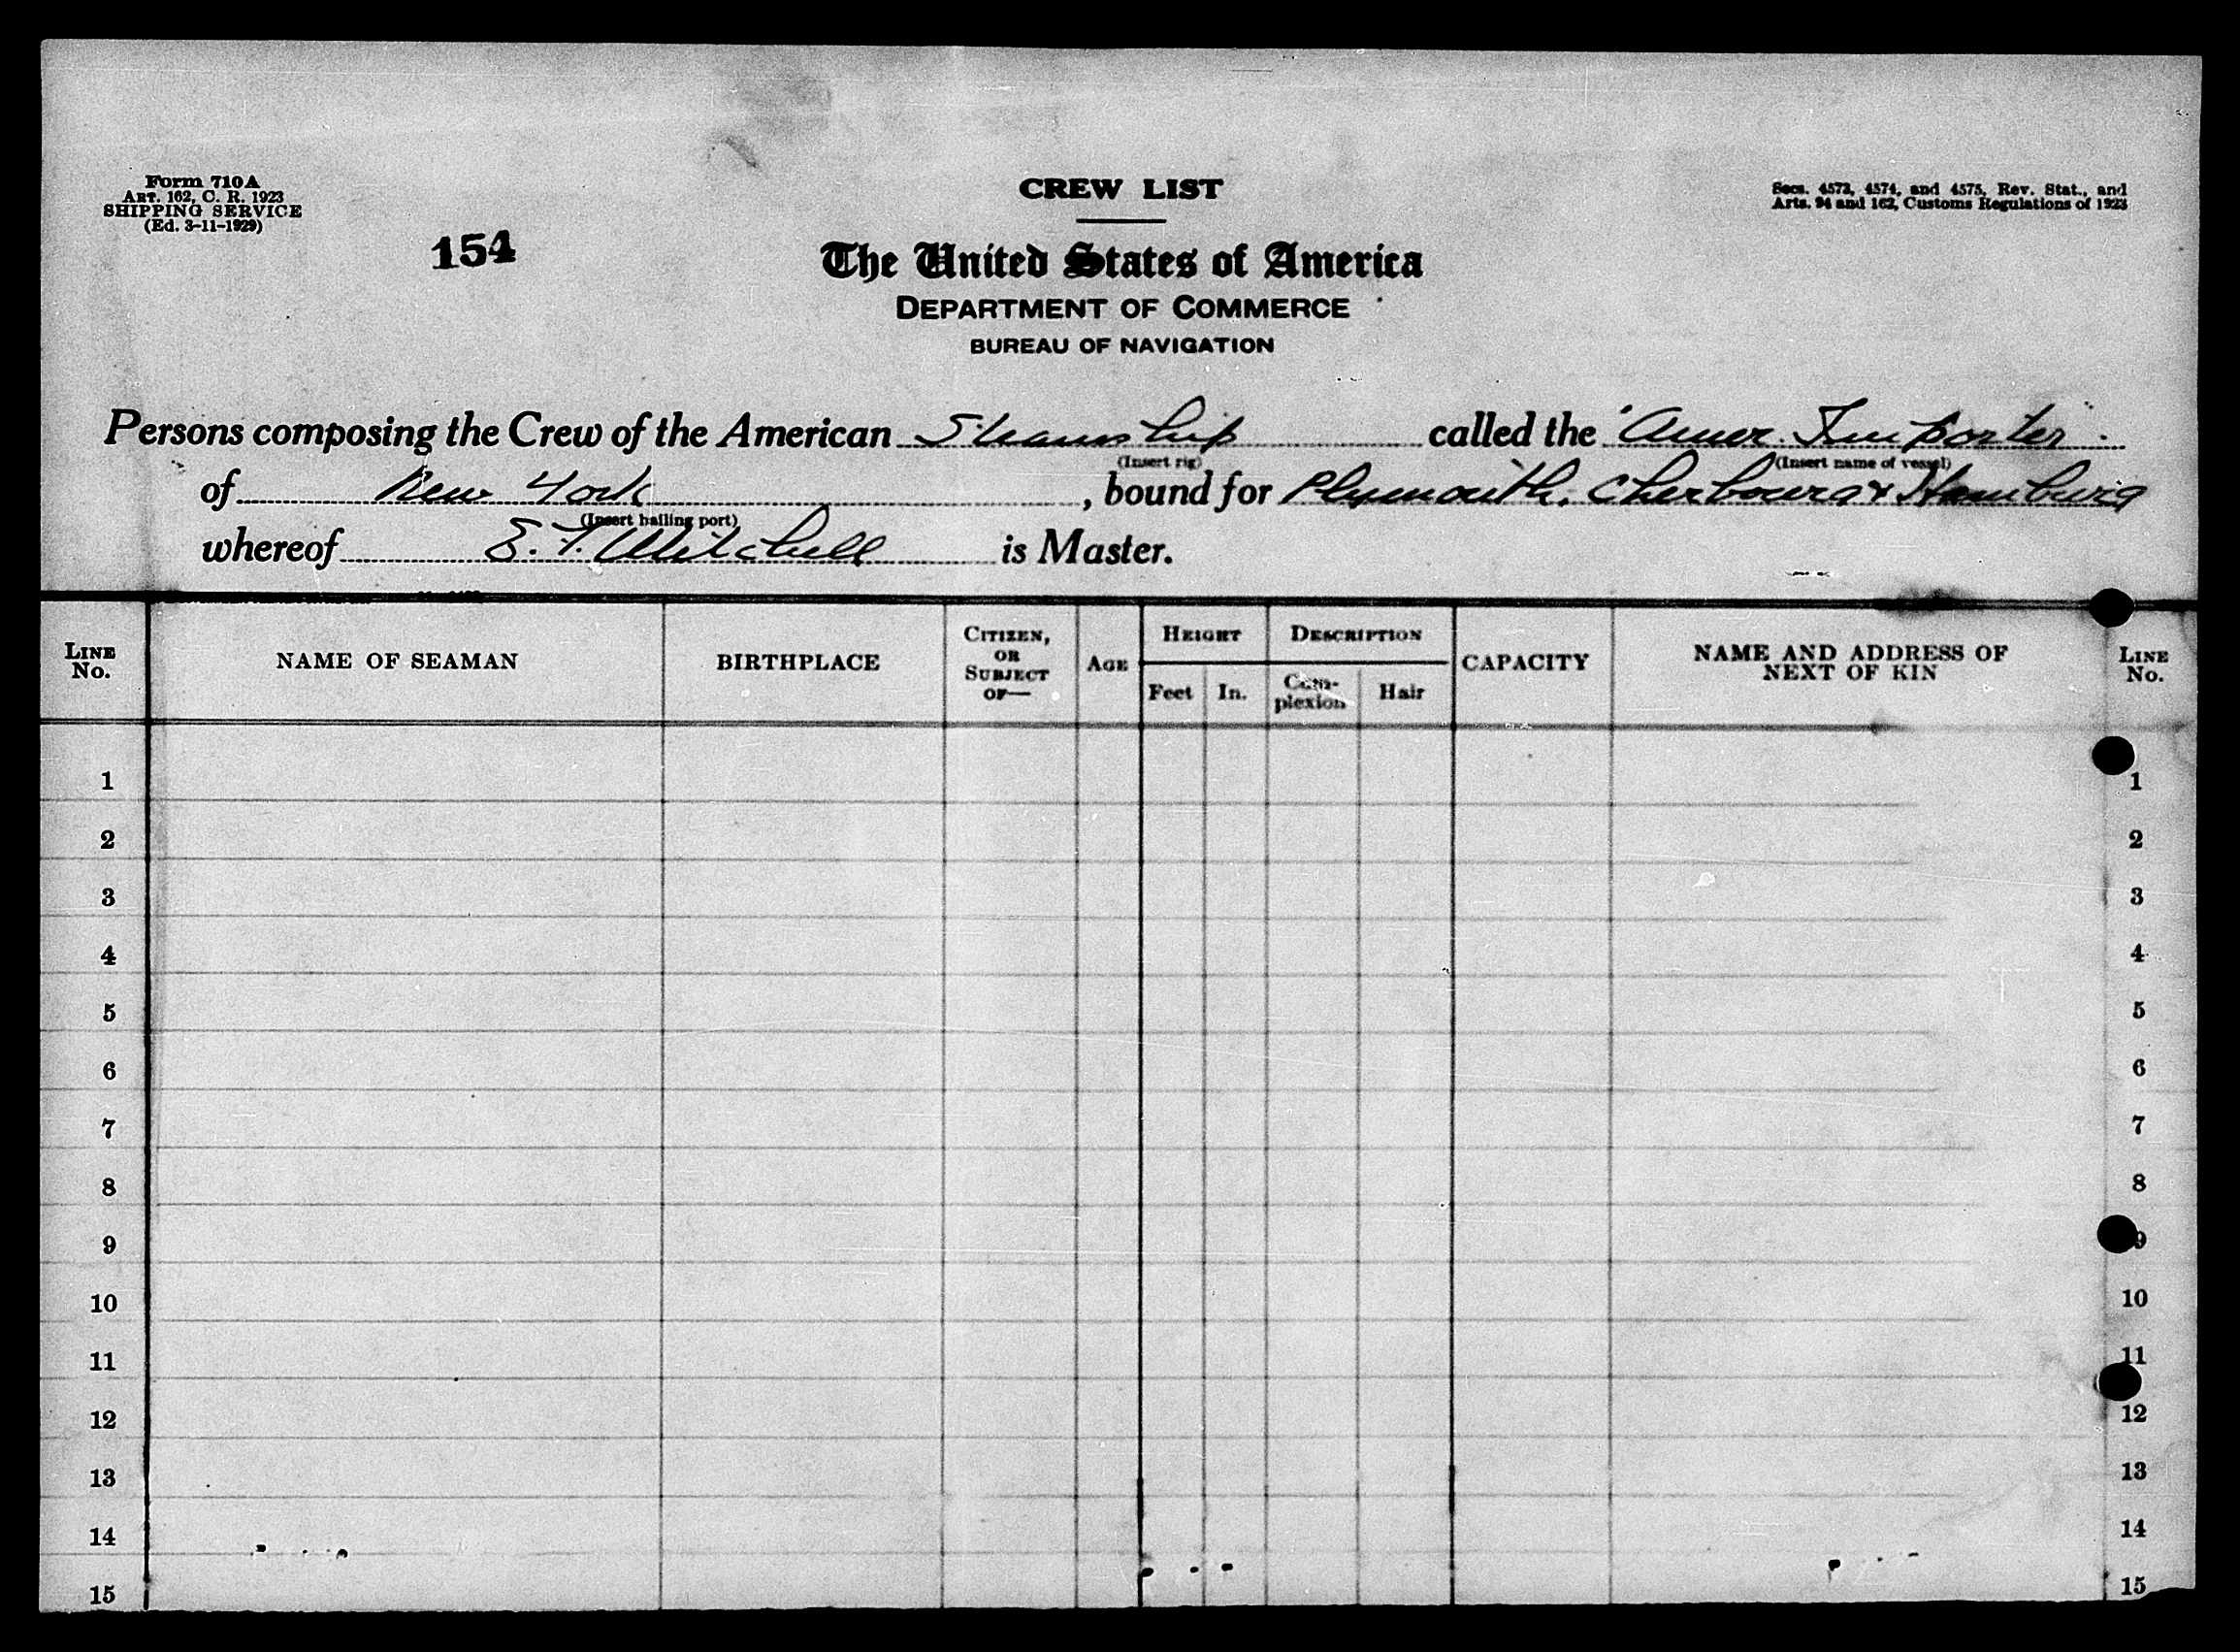 Form 710A
ART. 162, C. R. 1923
SHIPPING SERVICE
(Ed. 3-11-1929)
154
CREW LIST
Secs. 4573, 4574, and 4575, Rev. Stat., and
Arts. 94 and 162, Customs Regulations of 1923
The United States of America
DEPARTMENT OF COMMERCE
BUREAU OF NAVIGATION
Persons composing the Crew of the American Steamship called the "Amer. Importer
(Insert rig) (Insert name of vessel)
of New York, bound for Plymouth, Cherbourg & Hamburg
(Insert hailing port)
whereof E. F. Mitchell is Master.
LINE No. NAME OF SEAMAN BIRTHPLACE CITIZEN, OR SUBJECT OF— AGE HEIGHT Feet In. DESCRIPTION Complexion Hair CAPACITY NAME AND ADDRESS OF NEXT OF KIN LINE No.
1 1
2 2
3 3
4 4
5 5
6 6
7 7
8 8
9 9
10 10
11 11
12 12
13 13
14 14
15 15